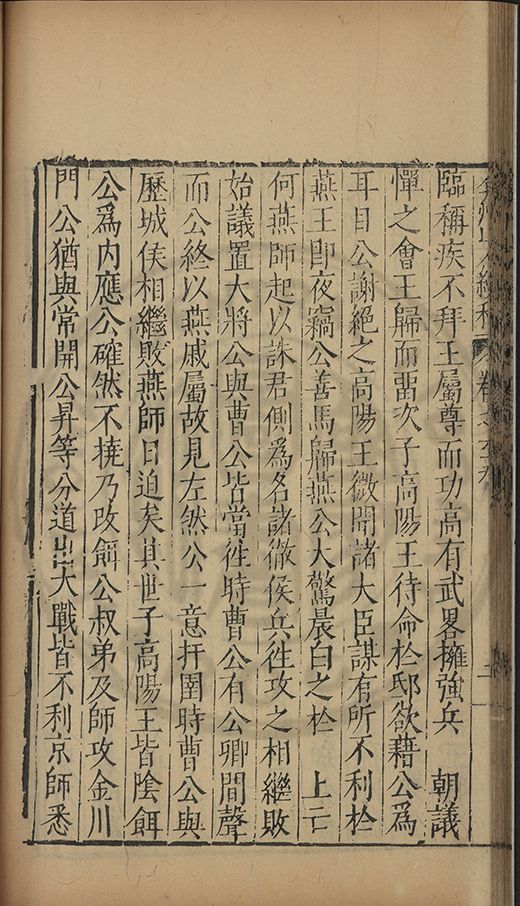 弇州山人續稿 卷之六
臨稱疾不拜王屬尊而功高有武畧擁強兵 朝議
憚之會王歸而畱次子高陽王待命於邸欲藉公爲
耳目公謝絕之高陽王微聞諸大臣謀有所不利於
燕王即夜竊公善馬歸燕公大驚晨白之於 上亡
何燕師起以誅君側爲名諸徹侯兵徃攻之相繼敗
始議置大將公與曹公皆當徃時曹公有公卿間聲
而公終以燕戚屬故見左然公一意扞圉時曹公與
歷城侯相繼敗燕師日迫矣其世子高陽王皆陰餌
公爲内應公確然不撓乃改餌公叔弟及師攻金川
門公猶與常開公昇等分道出大戰皆不利京師悉